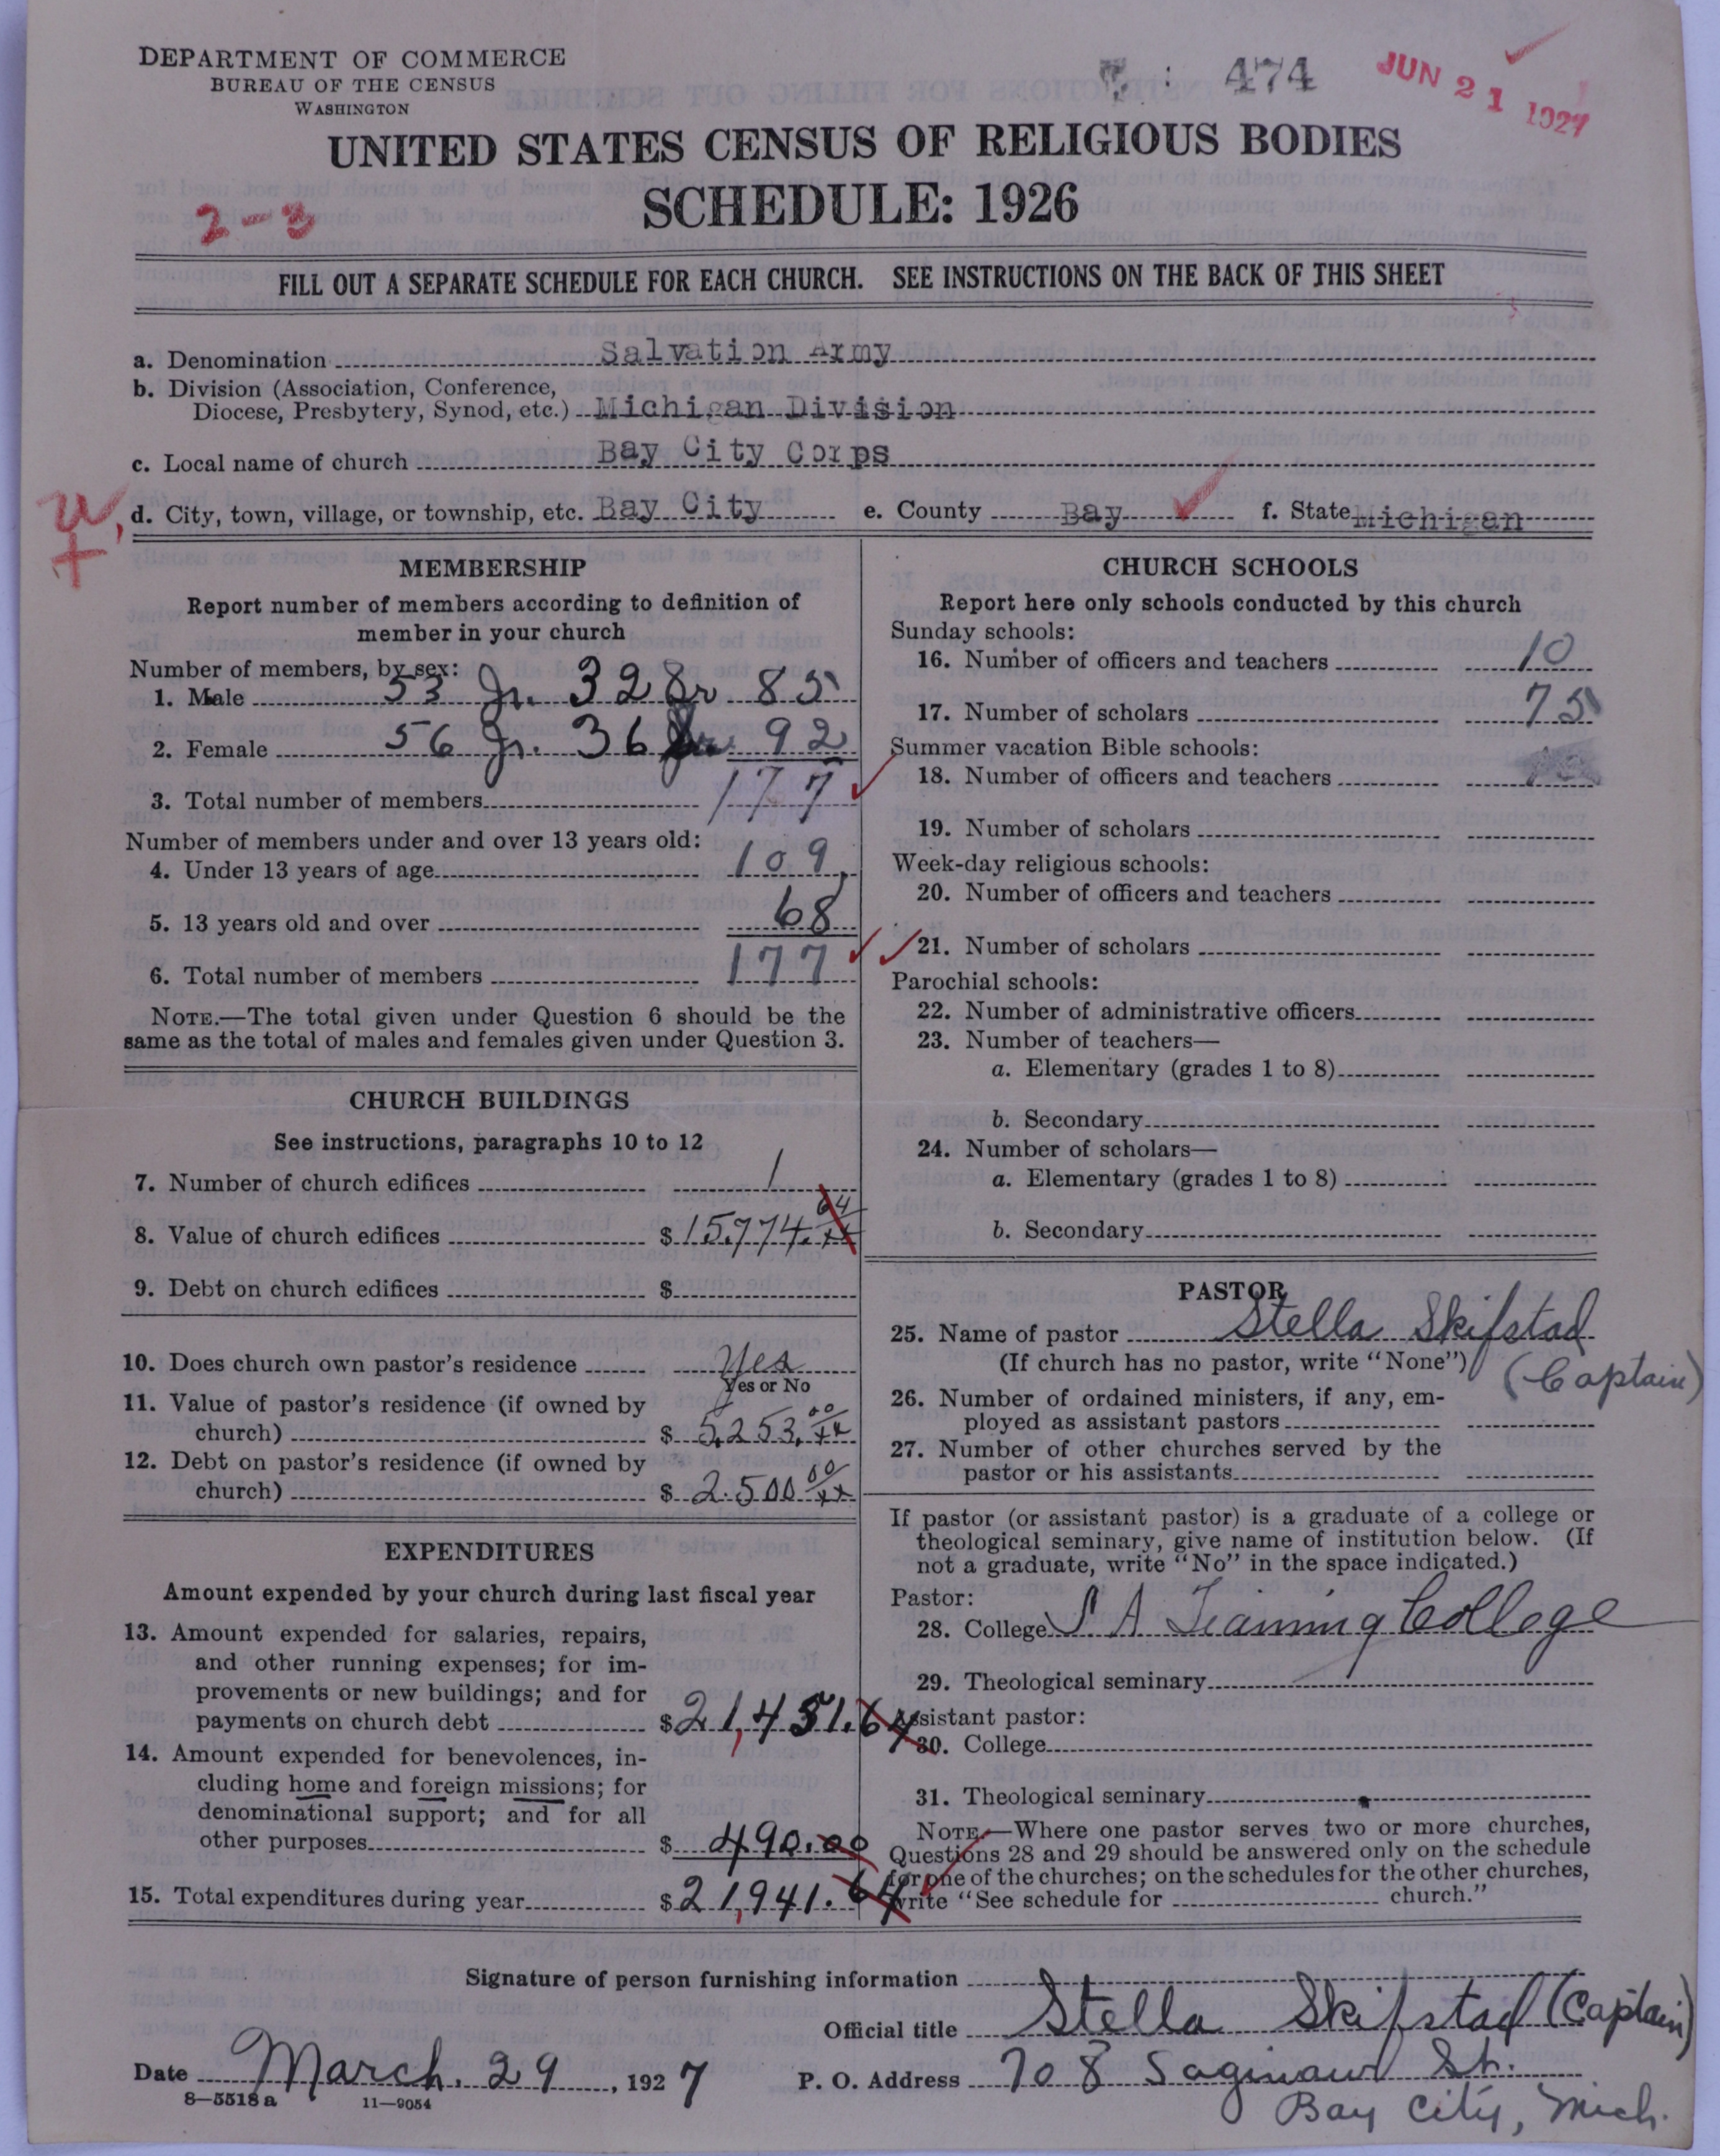 DEPARTMENT OF COMMERCE
BUREAU OF THE CENSUS
WASHINGTON
474
JUN 21 1927
UNITED STATES CENSUS OF RELIGIOUS BODIES
SCHEDULE: 1926
2-3
FILL OUT A SEPARATE SCHEDULE FOR EACH CHURCH. SEE INSTRUCTIONS ON THE BACK OF THIS SHEET
a. Denomination Salvation Army
b. Division (Association, Conference,
Diocese, Presbytery, Synod, etc.) Michigan Division
c. Local name of church Bay City Corps
d. City, town, village, or township, etc. Bay City e. County Bay f. State Michigan
MEMBERSHIP
Report number of members according to definition of
member in your church
Number of members, by sex:
1. Male 53 Jr. 32 Sr 85
2. Female 56 Jr. 36 Sr 92
3. Total number of members 177
Number of members under and over 13 years old:
4. Under 13 years of age 109
5. 13 years old and over 68
6. Total number of members 177
NOTE.—The total given under Question 6 should be the
same as the total of males and females given under Question 3.
CHURCH BUILDINGS
See instructions, paragraphs 10 to 12
7. Number of church edifices 1
8. Value of church edifices $15,774.64/xx
9. Debt on church edifices $
10. Does church own pastor's residence Yes
Yes or No
11. Value of pastor's residence (if owned by
church) $ 5,253.00/xx
12. Debt on pastor's residence (if owned by
church) $ 2.500 00/xx
EXPENDITURES
Amount expended by your church during last fiscal year
13. Amount expended for salaries, repairs,
and other running expenses; for im-
provements or new buildings; and for
payments on church debt $21,451.64
14. Amount expended for benevolences, in-
cluding home and foreign missions; for
denominational support; and for all
other purposes $ 490.00
15. Total expenditures during year $21,941.64
CHURCH SCHOOLS
Report here only schools conducted by this church
Sunday schools:
16. Number of officers and teachers 10
17. Number of scholars 75
Summer vacation Bible schools:
18. Number of officers and teachers
19. Number of scholars
Week-day religious schools:
20. Number of officers and teachers
21. Number of scholars
Parochial schools:
22. Number of administrative officers
23. Number of teachers—
a. Elementary (grades 1 to 8)
b. Secondary
24. Number of scholars—
a. Elementary (grades 1 to 8)
b. Secondary
PASTOR
25. Name of pastor Stella Skifstad
(If church has no pastor, write "None") (Captain)
26. Number of ordained ministers, if any, em-
ployed as assistant pastors
27. Number of other churches served by the
pastor or his assistants
If pastor (or assistant pastor) is a graduate of a college or
theological seminary, give name of institution below. (If
not a graduate, write "No" in the space indicated.)
Pastor:
28. College S A Training College
29. Theological seminary
Assistant pastor:
30. College
31. Theological seminary
NOTE.—Where one pastor serves two or more churches,
Questions 28 and 29 should be answered only on the schedule
for one of the churches; on the schedules for the other churches,
write "See schedule for church."
Signature of person furnishing information
Official title Stella Skifstad (Captain)
Date March. 29, 1927 P. O. Address 708 Saginaw St.
8—5518 a 11—9054 Bay City, Mich.